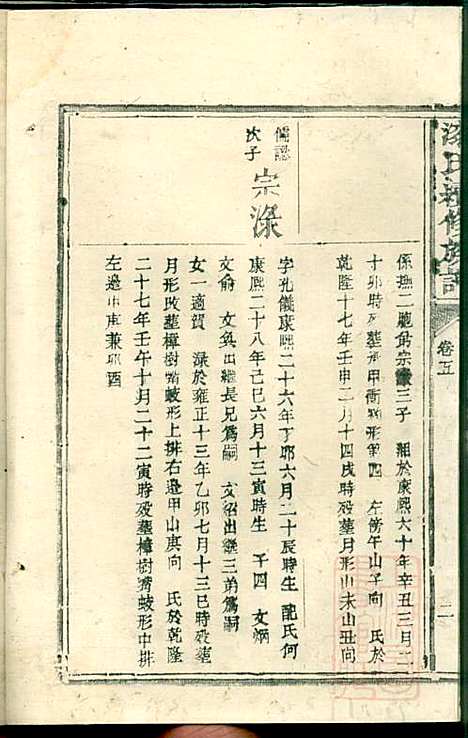 漆氏續修族譜
卷五
二
係撫二應第宗三子 殂於康熙六十年辛丑三月二
十卯時殁墓 甲衝 形 左傍午山子向 氏於
乾隆十七年壬申二月十四戌時殁墓月形山未山丑向
儒認
次子
宗淥
字孔儀康熙二十六年丁卯六月二十辰時生 配氏何
康熙二十八年己巳六月十三寅時生 子四 文炳
文俞 文奐出繼長兄為嗣 文紹出繼三弟為嗣
女一適賀 淥於雍正十三年乙卯七月十三巳時殁塟
月形改塟樟樹嘴蛟形上排右邉甲山庚向 氏於乾隆
二十七年壬午十月二十二寅時殁塟樟樹嘴蛟形中排
左邉甲庚兼卯酉